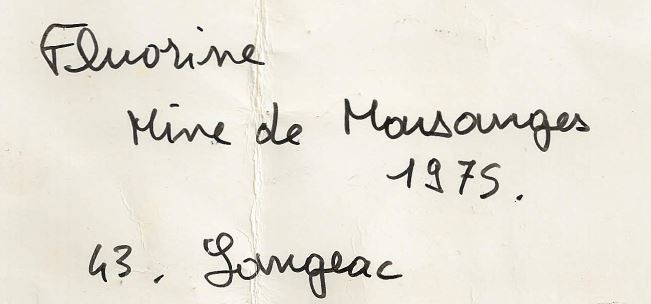 Fluorine
Mine de Marsanges
1975.
43. Langeac